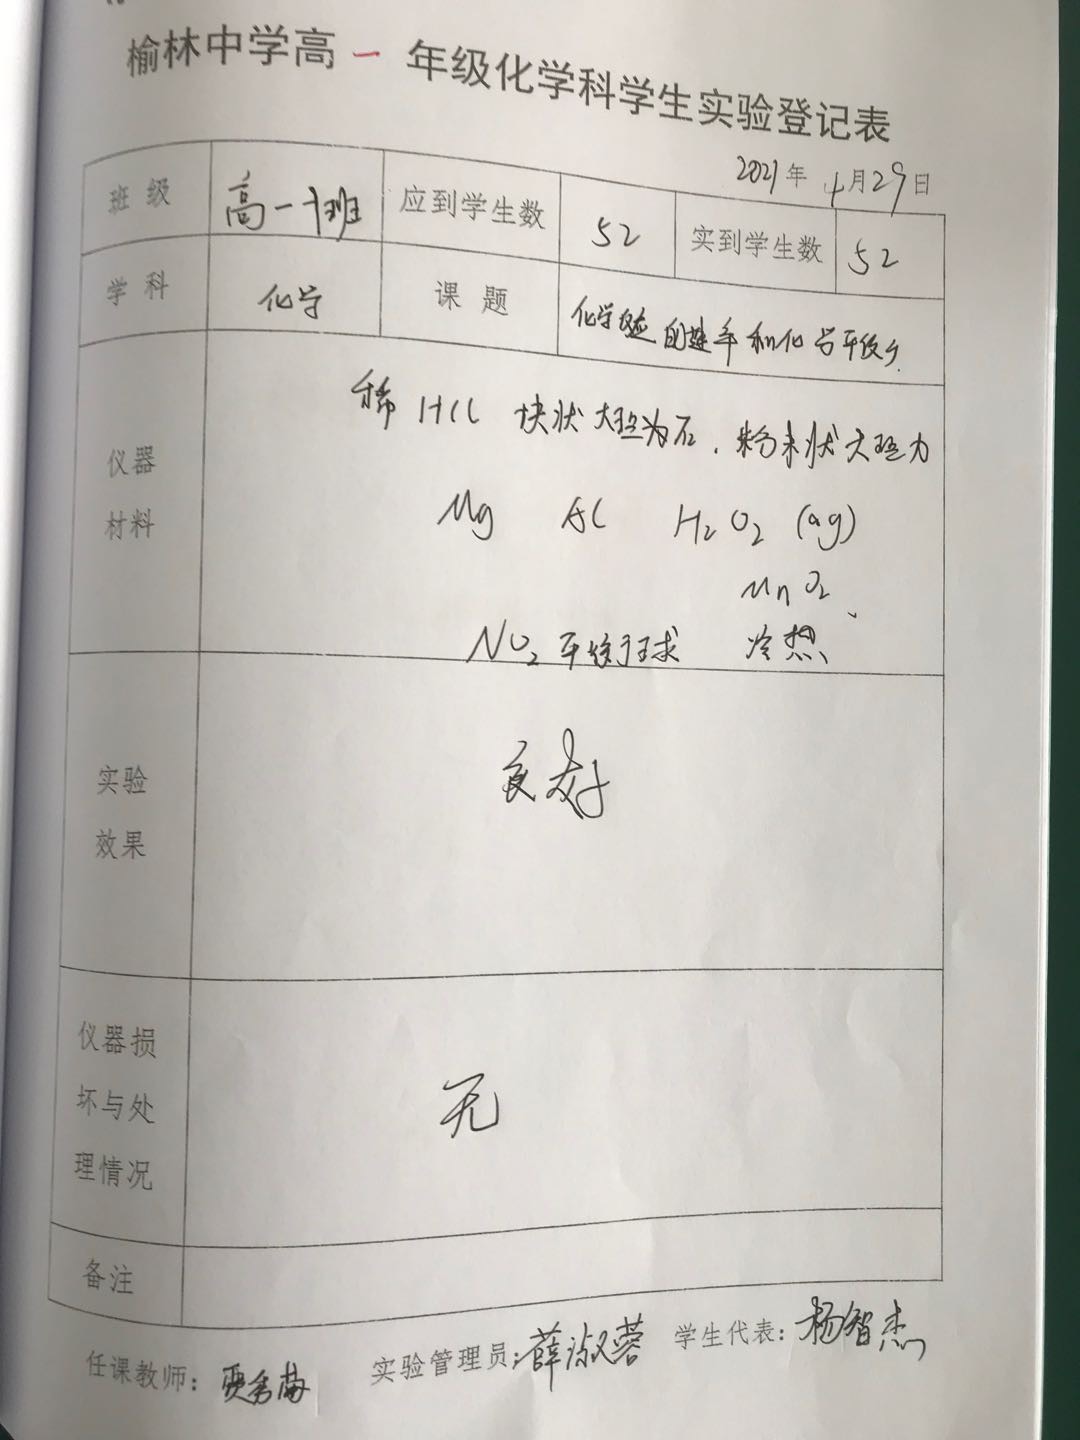 榆林中学高一年级化学科学生实验登记表
2021年4月29日
班级 高一十班 应到学生数 52 实到学生数 52
学科 化学 课题 化学反应的速率和化学平衡
仪器
材料
稀HCl 块状大理石、粉末状大理石
Mg Al H2O2 (aq)
MnO2、
NO2平衡球 冷热
实验
效果
良好
仪器损
坏与处
理情况
无
备注
任课教师: 实验管理员: 薛淑蓉 学生代表: 杨智杰